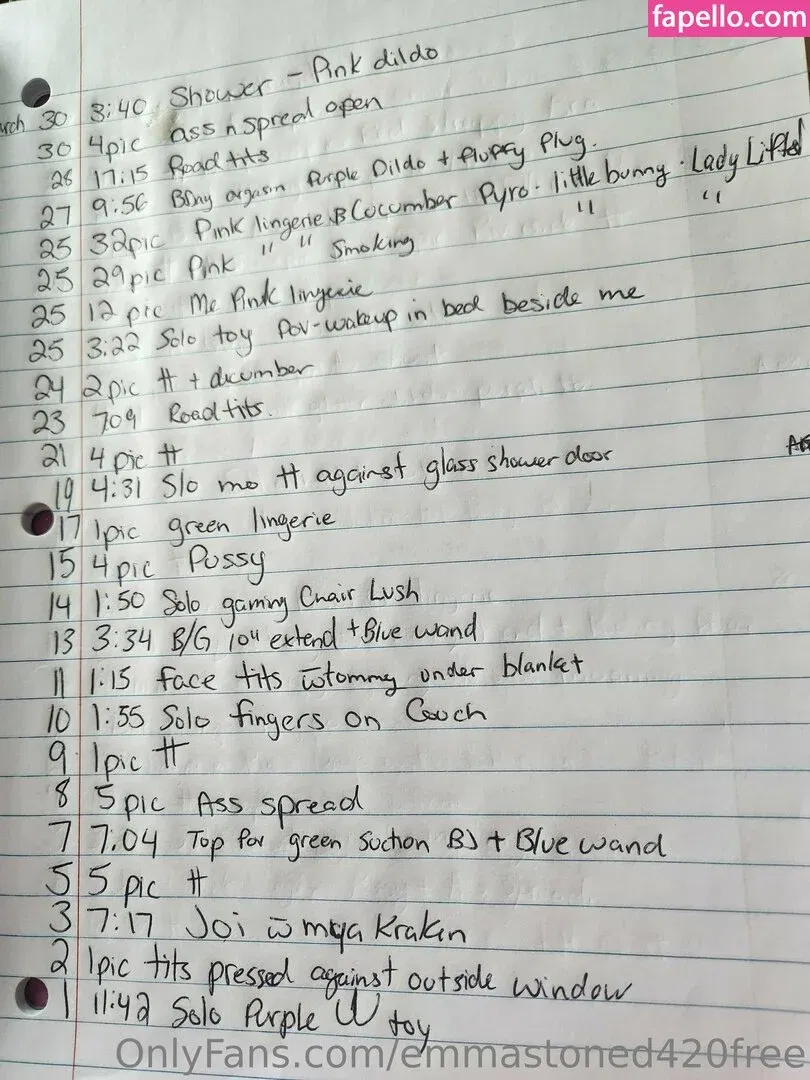 fapello.com
30 3:40 Shower - Pink dildo
30 4pic ass n spread open
28 17:15 Road tits
27 9:56 orgasm Purple Dildo + fluffy Plug.
25 32pic Pink lingerie Pyro. little bunny. Lady Lifted
25 29pic Pink " " Smoking " "
25 12 pic Me Pink lingerie
25 3:22 Solo toy Pov-wakeup in bed beside me
24 2pic tt +
23 709 Road tits.
21 4 pic tt
19 4:31 Slo mo tt against glass shower door
17 1pic green lingerie
15 4 pic Pussy
14 1:50 Solo gaming Chair Lush
13 3:34 B/G extend + Blue wand
11 1:15 face tits w tommy under blanket
10 1:55 Solo fingers on Couch
9 1pic tt
8 5 pic Ass spread
7 7:04 Top for green Suction BJ + Blue wand
5 5 pic tt
3 7:17 Joi w mya Kraken
2 1pic tits pressed against outside window
1 11:42 Solo Purple toy
OnlyFans.com/emmastoned420free